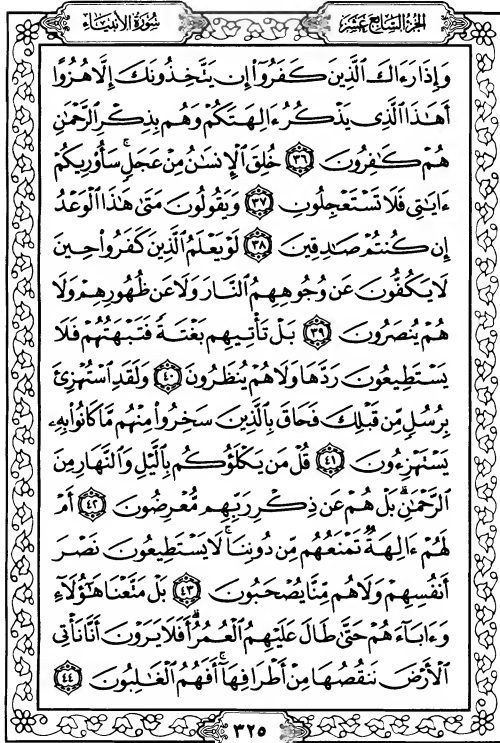 الجزء السابع عشر سورة الأنبياء
وَإِذَا رَءَاكَ ٱلَّذِينَ كَفَرُوٓا۟ إِن يَتَّخِذُونَكَ إِلَّا هُزُوًا
أَهَٰذَا ٱلَّذِى يَذْكُرُ ءَالِهَتَكُمْ وَهُم بِذِكْرِ ٱلرَّحْمَٰنِ
هُمْ كَٰفِرُونَ ٣٦ خُلِقَ ٱلْإِنسَٰنُ مِنْ عَجَلٍ ۚ سَأُو۟رِيكُمْ
ءَايَٰتِى فَلَا تَسْتَعْجِلُونِ ٣٧ وَيَقُولُونَ مَتَىٰ هَٰذَا ٱلْوَعْدُ
إِن كُنتُمْ صَٰدِقِينَ ٣٨ لَوْ يَعْلَمُ ٱلَّذِينَ كَفَرُوا۟ حِينَ
لَا يَكُفُّونَ عَن وُجُوهِهِمُ ٱلنَّارَ وَلَا عَن ظُهُورِهِمْ وَلَا
هُمْ يُنصَرُونَ ٣٩ بَلْ تَأْتِيهِم بَغْتَةً فَتَبْهَتُهُمْ فَلَا
يَسْتَطِيعُونَ رَدَّهَا وَلَا هُمْ يُنظَرُونَ ٤٠ وَلَقَدِ ٱسْتُهْزِئَ
بِرُسُلٍ مِّن قَبْلِكَ فَحَاقَ بِٱلَّذِينَ سَخِرُوا۟ مِنْهُم مَّا كَانُوا۟ بِهِۦ
يَسْتَهْزِءُونَ ٤١ قُلْ مَن يَكْلَؤُكُم بِٱلَّيْلِ وَٱلنَّهَارِ مِنَ
ٱلرَّحْمَٰنِ ۗ بَلْ هُمْ عَن ذِكْرِ رَبِّهِم مُّعْرِضُونَ ٤٢ أَمْ
لَهُمْ ءَالِهَةٌ تَمْنَعُهُم مِّن دُونِنَا ۚ لَا يَسْتَطِيعُونَ نَصْرَ
أَنفُسِهِمْ وَلَا هُم مِّنَّا يُصْحَبُونَ ٤٣ بَلْ مَتَّعْنَا هَٰٓؤُلَآءِ
وَءَابَآءَهُمْ حَتَّىٰ طَالَ عَلَيْهِمُ ٱلْعُمُرُ ۗ أَفَلَا يَرَوْنَ أَنَّا نَأْتِى
ٱلْأَرْضَ نَنقُصُهَا مِنْ أَطْرَافِهَآ ۚ أَفَهُمُ ٱلْغَٰلِبُونَ ٤٤
٣٢٥